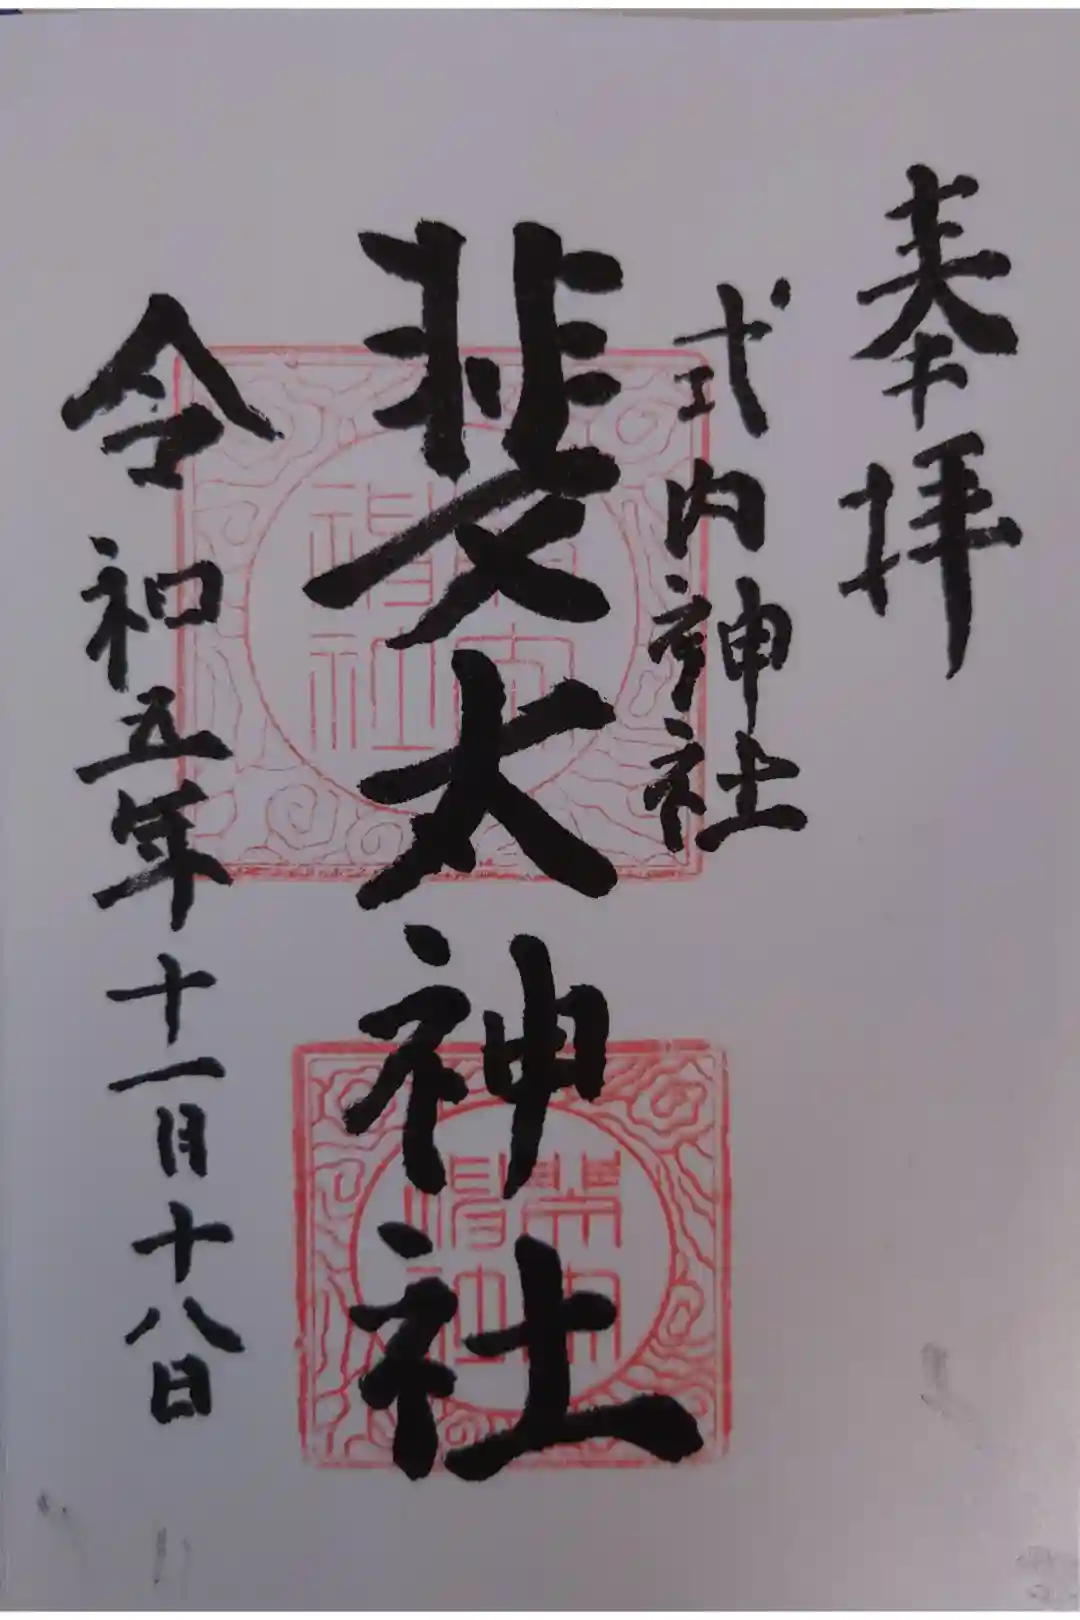 奉拝
式内神社
斐太神社
令和五年十一月十八日